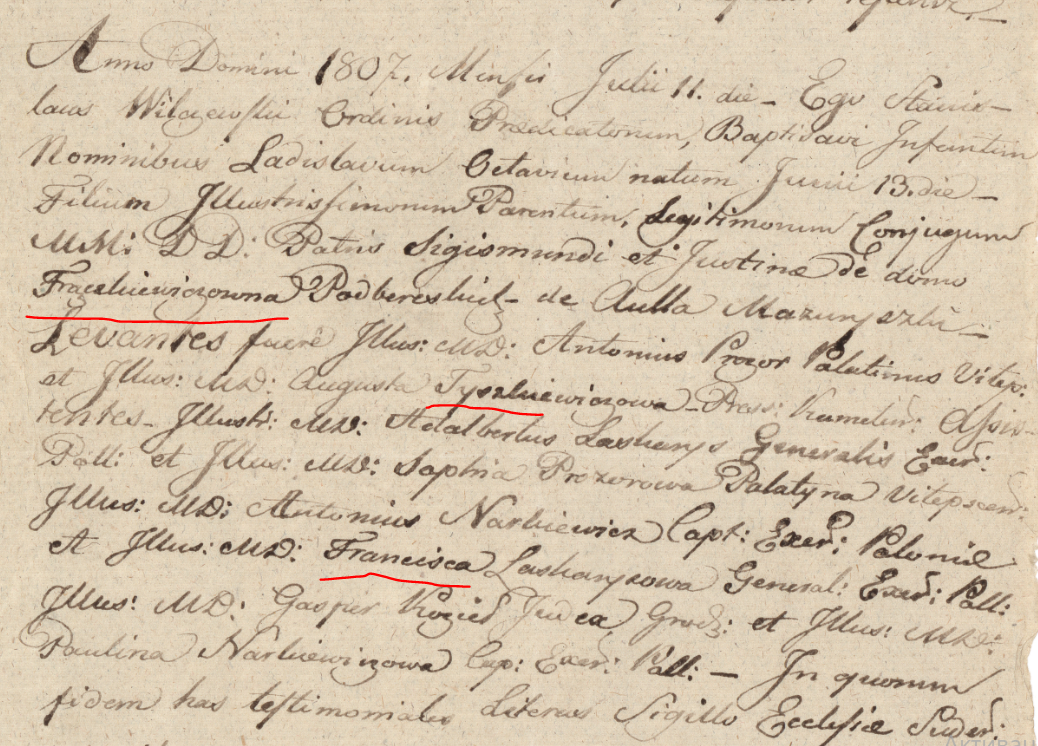 Anno Domini 1807. Mensis Julii 11. die - Ego Stanis-
laus Ordinis Praedicatorum, Baptisavi Infantem
Nominibus Ladislavum Octavium natum Junii 13. die -
Filium Illustrissimorum Parentum, Legitimorum Conjugum
MM: DD: Patris Sigismundi et Justinae de domo
Frąckiewiczowna de Aulla
Levantes fuerê Illus: MD: Antonius Prozor Palatinus Vitep:
et Illus: MD: Augusta Tyszkiewiczowa - Assis-
tentes - Illustr: MD: Adalbertus Generalis Exer:
Poll: et Illus: MD: Sophia Prozorowa Palatyna
Illus: MD: Antonius Narkiewicz Capt: Exer: Poloniae
et Illus: MD: Francisca General: Exer: Poll:
Illus: MD: Gasper Kozieł Judex Grod: et Illus: MD:
Paulina Narkiewiczowa Cap: Exer: Poll: - In quorum
fidem has testimoniales Literas Sigillo Ecclesiae